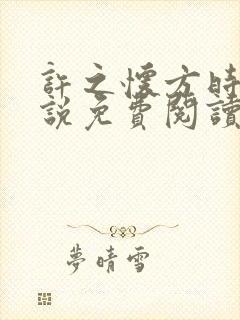 許之懷方時
說免費閱讀
夢晴雪